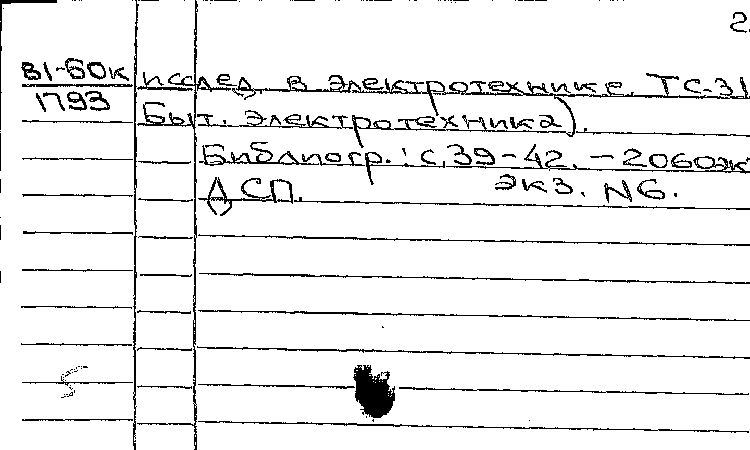 2.
81-60к исслед. в электротехнике. ТС-31
1793 Быт. электротехника).
Библиогр.: с. 39-42. - 2060эк
ДСП. экз. N6.
5